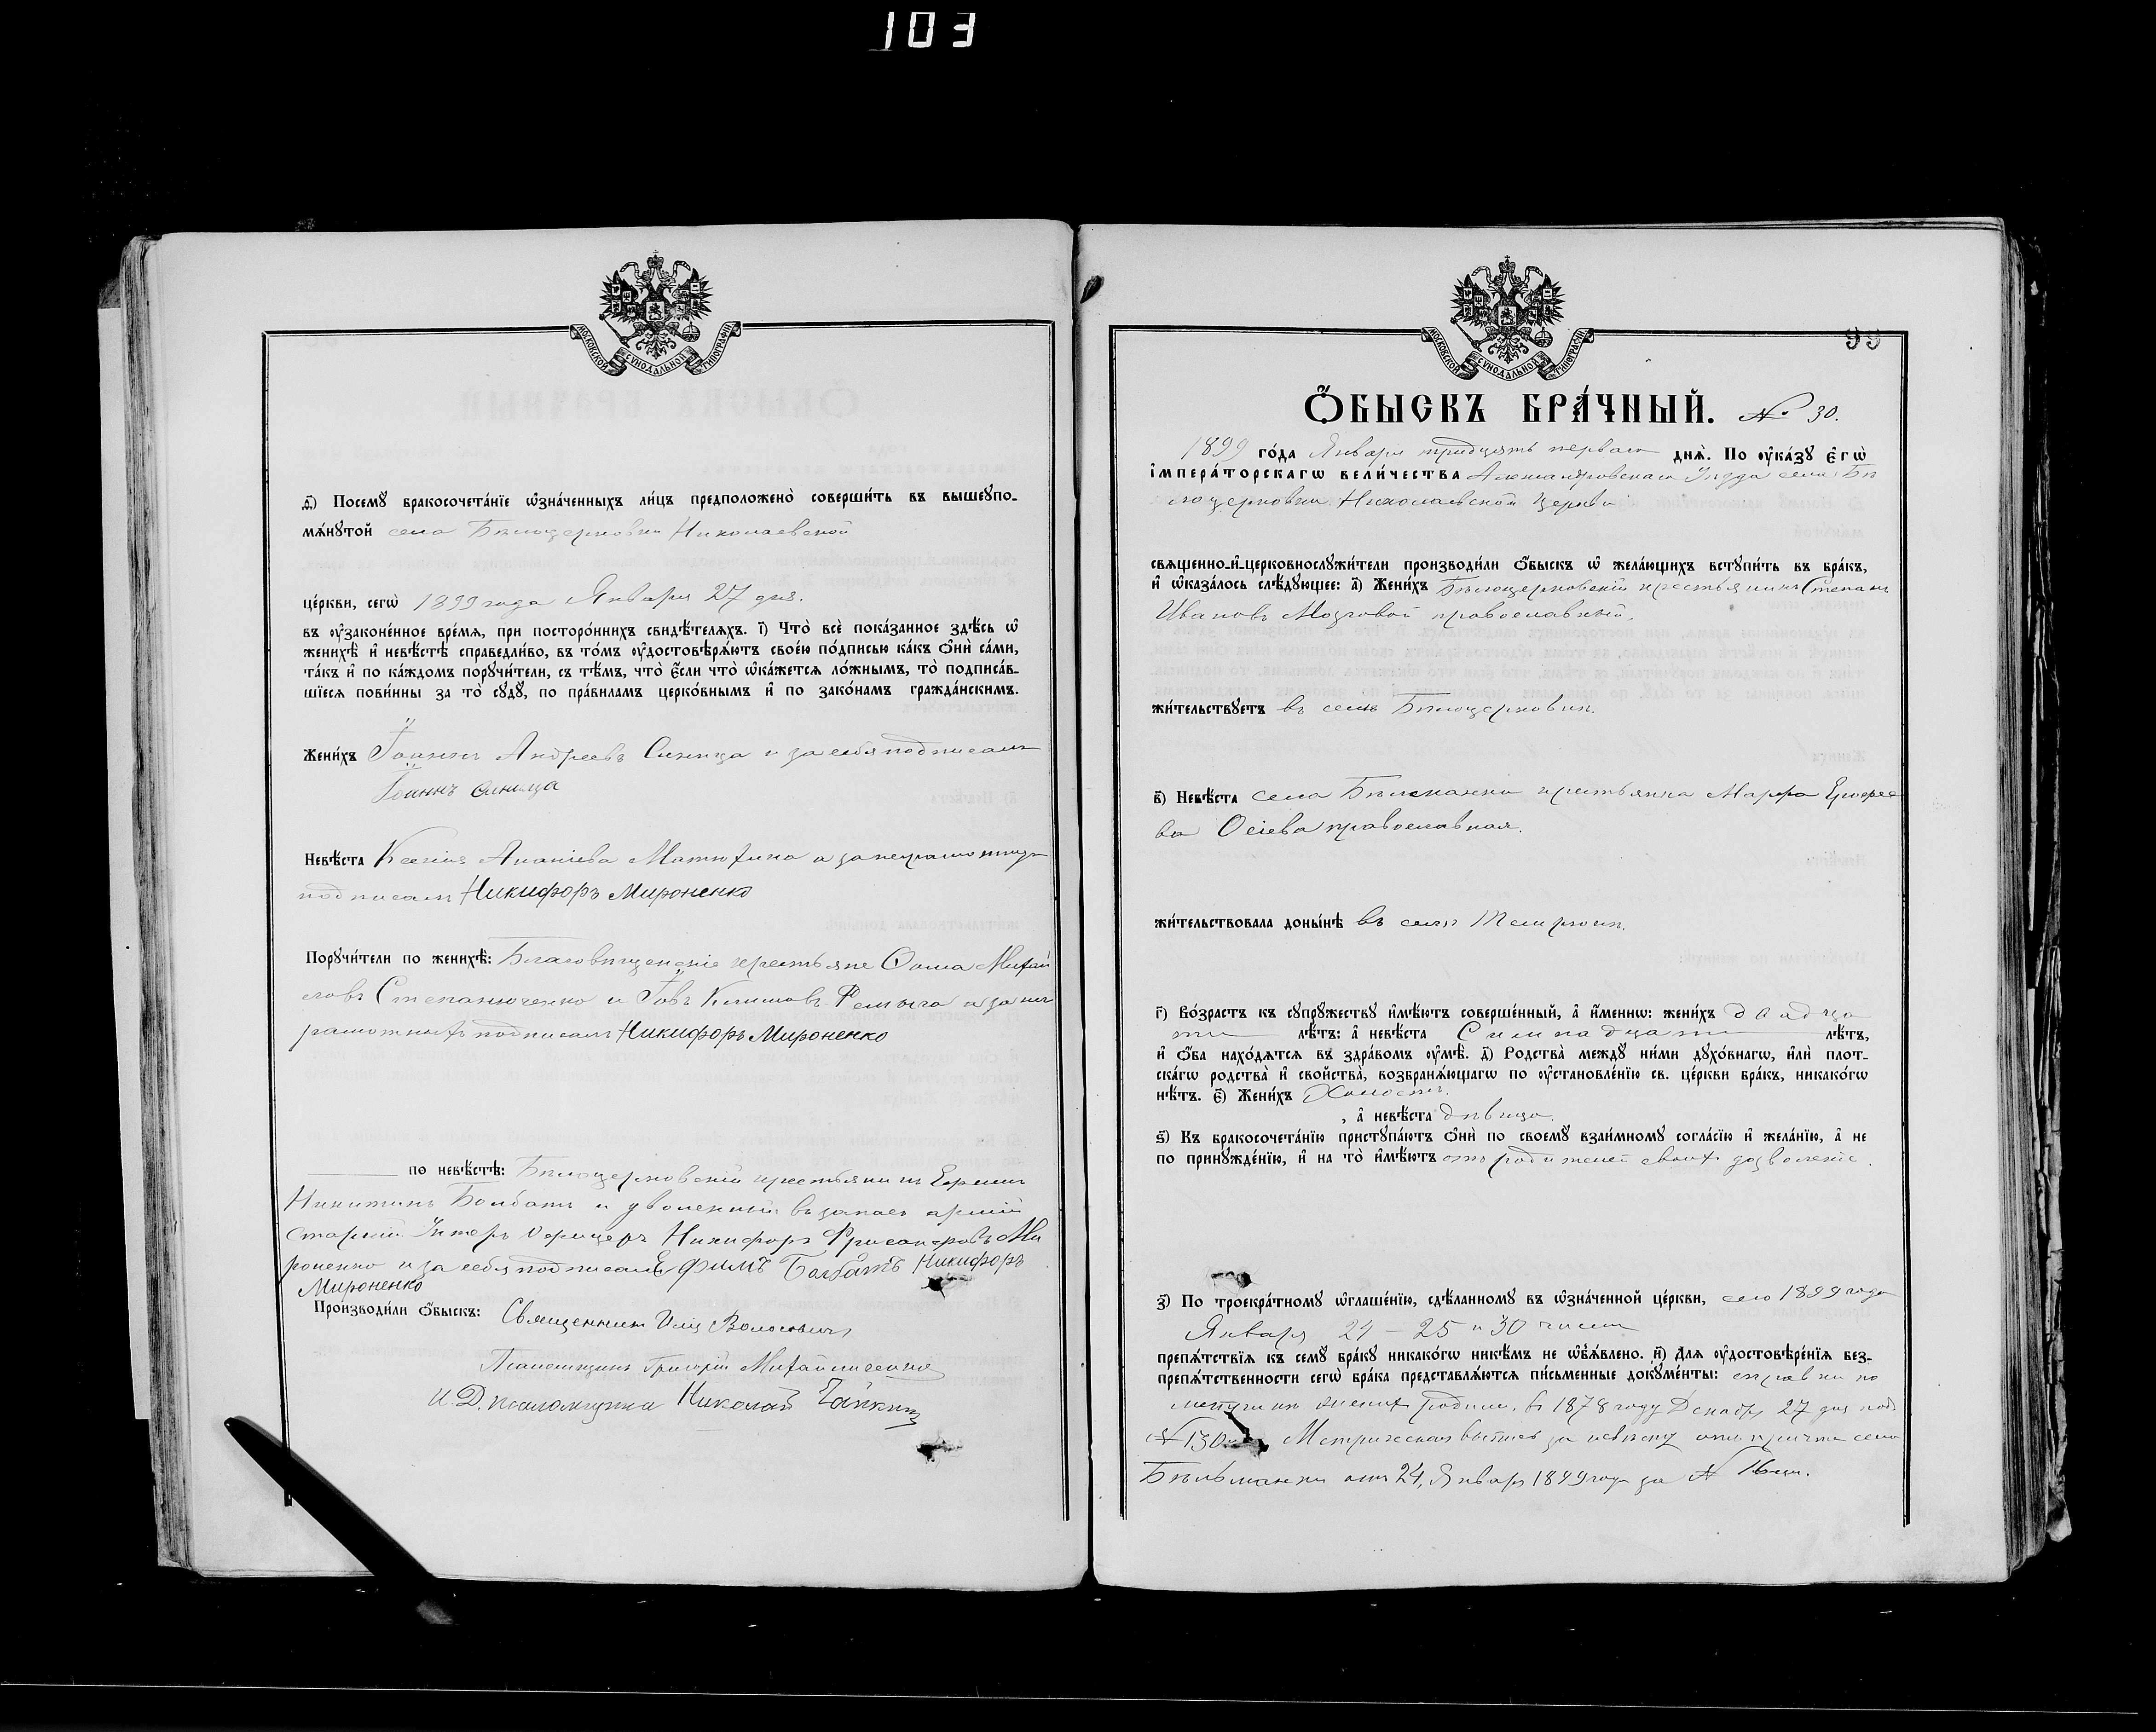 103
МОСКОВСКОЙ СУНОДАЛЬНОЙ ТИПОГРАФІИ
д҃) Посемꙋ̀ бракосочета́нїе ѡ҆зна́ченныхъ ли́цъ предположено̀ соверши́ть въ вышеꙋпо-
мѧ́нꙋтой села Бѣлоцерковки Николаевской
це́ркви, сегѡ̀ 1899 года Января 27 дня.
въ ᲂу҆зако́ненное вре́мѧ, при посторо́ннихъ свидѣ́телѧхъ. і҃) Что̀ всѐ пока́занное здѣ́сь ѡ҆
женихѣ̀ и҆ невѣ́стѣ справедли́во, въ то́мъ ᲂу҆достовѣрѧ́ютъ свое́ю по́дписью ка́къ ѻ҆нѝ са́ми,
та́къ и҆ по ка́ждомъ порꙋчи́тели, съ тѣ́мъ, что̀ є҆́сли что̀ ѡ҆ка́жетсѧ ло́жнымъ, то̀ подписа́в-
шїесѧ пови́нны за то̀ сꙋдꙋ̀, по пра́виламъ церко́внымъ и҆ по зако́намъ гражда́нскимъ.
Жени́хъ Іоаннъ Андреевъ Синица и за себя подписалъ
Іоаннъ Синица
Невѣ́ста Ксенія Ананіева Матюхина а за неграмотную
подписалъ Никифоръ Мироненко
Порꙋчи́тели по женихѣ̀: Благовѣщенскіе крестьяне Ѳома Михай
ловъ Степанюченко и Іовъ Климовъ а за не
грамотныхъ подписалъ Никифоръ Мироненко
по невѣ́стѣ: Бѣлоцерковскій крестьянинъ Ефимъ
Никитинъ Болбатъ и уволенный въ запасъ арміи
Старшій Унтеръ Офицеръ Никифоръ Ми
роненко и за себя подписали Ефимъ Болбатъ Никифоръ
Мироненко
Производи́ли ѻ҆́быскъ: Священникъ
Псаломщикъ Григорій Михайличенко
И. Д. псаломщика Николай Чайкинъ
МОСКОВСКОЙ СУНОДАЛЬНОЙ ТИПОГРАФІИ
99
Ѻ҆́БЫСКЪ БРА́ЧНЫЙ. № 30.
1899 го́да Января тридцать перваго днѧ̀. По ᲂу҆ка́зꙋ є҆гѡ̀
і҆мпера́торскагѡ вели́чества Александровскаго Уѣзда села Бѣ
лоцерковки Николаевской церкви
свѧще́нно-и҆-церковнослꙋжи́тели производи́ли ѻ҆́быскъ ѡ҆ жела́ющихъ встꙋпи́ть въ бра́къ,
и҆ ѡ҆каза́лось слѣ́дꙋющее: а҃) Жени́хъ Бѣлоцерковскій крестьянинъ Степанъ
Ивановъ Мозговой православный.
жи́тельствꙋетъ въ селѣ Бѣлоцерковкѣ.
в҃) Невѣ́ста села Бѣльманки крестьянка Марфа Ерофее
ва Осіева православная.
жи́тельствовала доны́нѣ въ селѣ Темрюкѣ.
г҃) Во́зрастъ къ сꙋпрꙋ́жествꙋ и҆мѣ́ютъ соверше́нный, а҆ и҆́меннѡ: жени́хъ двадца
ти лѣ́тъ: а҆ невѣ́ста Семнадцати лѣ́тъ,
и҆ ѻ҆́ба нахо́дѧтсѧ въ здра́вомъ ᲂу҆мѣ̀. д҃) Родства̀ междꙋ ни́ми дꙋхо́внагѡ, и҆лѝ плот-
ска́гѡ родства̀ и҆ сво́йства̀, возбранѧ́ющагѡ по ᲂу҆становле́нїю св. це́ркви бра́къ, никако́гѡ
нѣ́тъ. є҃) Жени́хъ Холостъ.
, а҆ невѣ́ста дѣвица.
ѕ҃) Къ бракосочета́нїю пристꙋпа́ютъ ѻ҆нѝ по своемꙋ̀ взаи́мномꙋ согла́сїю и҆ жела́нїю, а҆ не
по принꙋжде́нїю, и҆ на то̀ и҆мѣ́ютъ отъ родителей своихъ дозволеніе.
з҃) По троекра́тномꙋ ѡ҆глаше́нїю, сдѣ́ланномꙋ въ ѡ҆зна́ченной це́ркви, сего 1899 года
Января 24 - 25 и 30 чиселъ
препѧ́тствїѧ къ семꙋ̀ бра́кꙋ никако́гѡ никѣ́мъ не ѡ҆б̾ѧ́влено. и҃) Длѧ ᲂу҆достовѣре́нїѧ без-
препѧ́тственности сегѡ̀ бра́ка представлѧ́ютсѧ пи́сьменные докꙋме́нты: справки по
метрикѣ женихъ родился въ 1878 году Декабря 27 дня подъ
№ 130 Метрическая выпись за невѣсту отъ причта села
Бѣльманки отъ 24, Января 1899 года за № 16